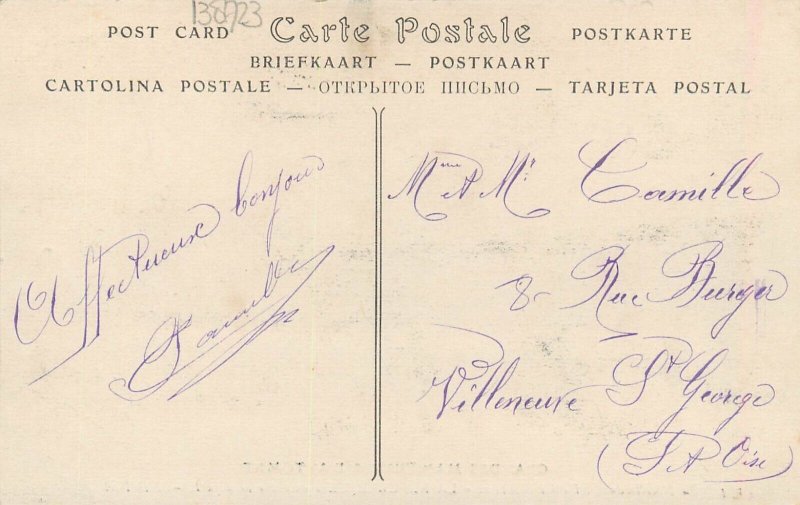 138723
POST CARD Carte Postale POSTKARTE
BRIEFKAART — POSTKAART
CARTOLINA POSTALE — ОТКРЫТОЕ ПИСЬМО — TARJETA POSTAL
Affectueux bonjour
Camille
Mme et Mr Camille
8 - Rue Burger
Villeneuve St George
(S et Oise)